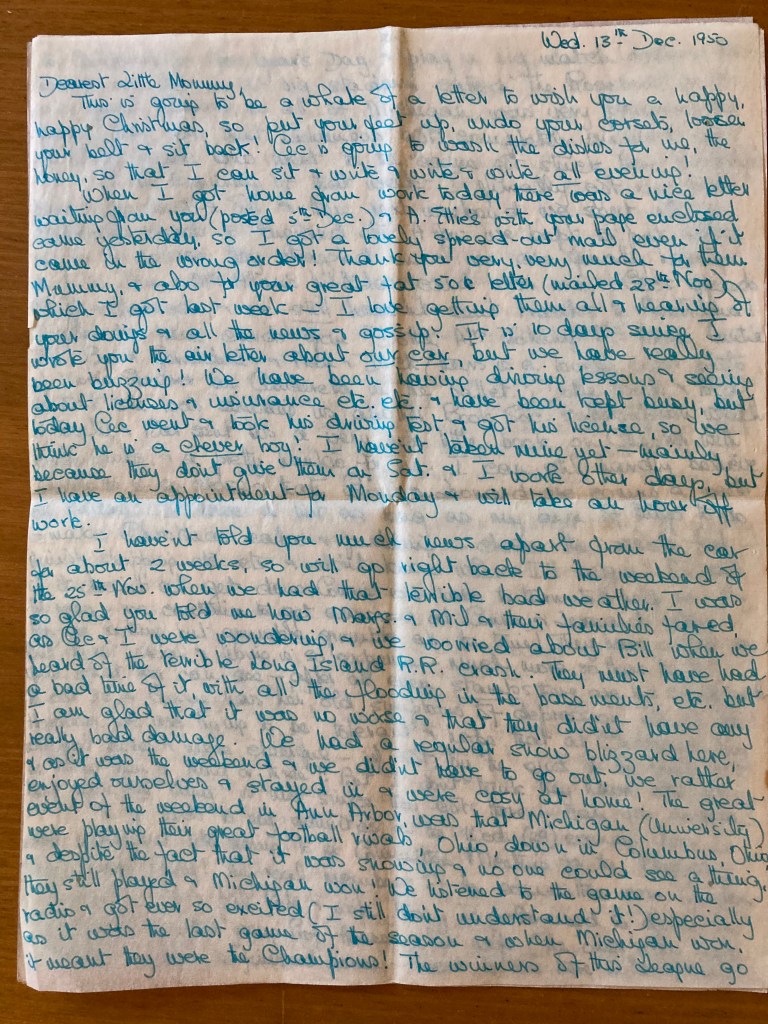 Wed. 13th Dec. 1950
Dearest Little Mommy
This is going to be a whale of a letter to wish you a happy,
happy Christmas, so put your feet up, undo your corsets, loosen
your belt & sit back! Cec is going to wash the dishes for me, the
honey, so that I can sit & write & write & write all evening!
When I got home from work today there was a nice letter
waiting from you (posted 5th Dec.) & A. Ettie's with your page enclosed
came yesterday, so I got a lovely spread-out mail even if it
came in the wrong order! Thank you very, very much for them
Mummy, & also for your great fat 50c letter (mailed 28th Nov)
which I got last week — I love getting them all & hearing of
your doings & all the news & gossip! It is 10 days since I
wrote you the air letter about our car, but we have really
been buzzing! We have been having driving lessons & seeing
about licenses & insurance etc. etc. & have been kept busy, but
today Cec went & took his driving test & got his licence, so we
think he is a clever boy! I haven't taken mine yet — mainly
because they don't give them on Sat. & I work other days, but
I have an appointment for Monday & will take an hour off
work.
I haven't told you much news apart from the car
for about 2 weeks, so will go right back to the weekend of
the 25th Nov. when we had that terrible bad weather. I was
so glad you told me how Marg. & Mil & their families fared,
as Cec & I were wondering, & we worried about Bill when we
heard of the terrible Long Island R.R. crash. They must have had
a bad time of it, with all the flooding in the basements, etc. but
I am glad that it was no worse & that they did'nt have any
really bad damage. We had a regular snow blizzard here,
& as it was the weekend & we did'nt have to go out, we rather
enjoyed ourselves & stayed in & were cosy at home! The great
event of the weekend in Ann Arbor, was that Michigan (University)
were playing their great football rivals, Ohio, down in Columbus, Ohio,
& despite the fact that it was snowing & no one could see a thing,
they still played & Michigan won! We listened to the game on the
radio & got ever so excited (I still don't understand it!) especially
as it was the last game of the season & when Michigan won,
it meant they were the Champions! The winners of this League go